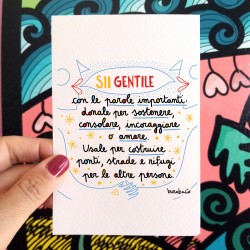 SII GENTILE
con le parole importanti.
donale per sostenere,
consolare, incoraggiare
o amare.
Usale per costruire
ponti, strade e rifugi
per le altre persone